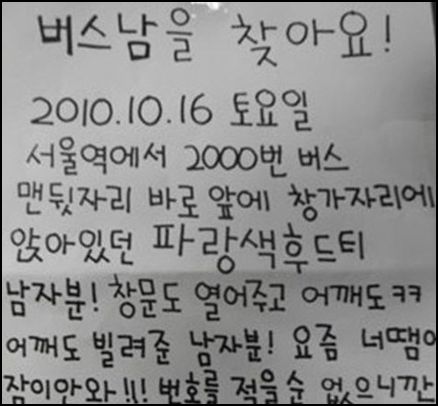 버스남을 찾아요!
2010.10.16 토요일
서울역에서 2000번 버스
맨뒷자리 바로 앞에 창가자리에
앉아있던 파랑색후드티
남자분! 창문도 열어주고 어깨도ㅋㅋ
어깨도 빌려준 남자분! 요즘 너땜에
잠이안와!!! 번호를 적을순 없으니깐